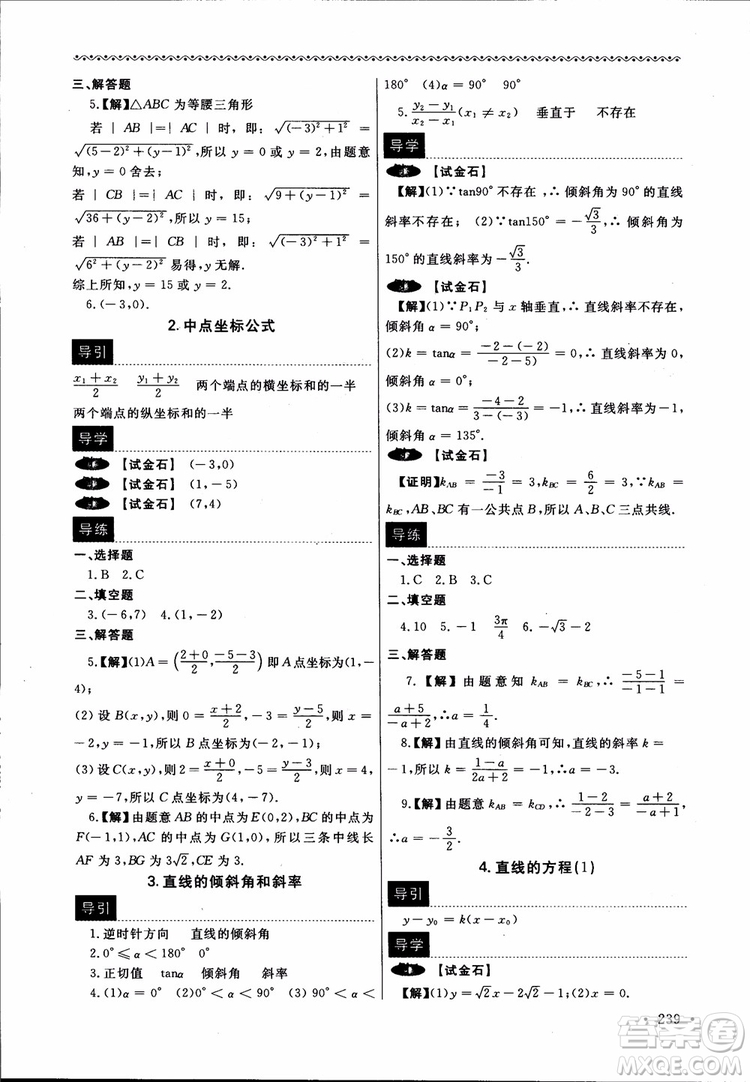 三、解答题
5.【解】△ABC 为等腰三角形
若 | AB |=| AC | 时，即：√((-3)²+1²) =
√((5-2)²+(y-1)²)，所以 y = 0 或 2，由题意
知，y = 0 舍去；
若 | CB |=| AC | 时，即：√(9+(y-1)²) =
√(36+(y-1)²)，所以 y = 15；
若 | AB |=| CB | 时，即：√((-3)²+1²) =
√(6²+(y-1)²) 易得，y 无解.
综上所知，y = 15 或 y = 2
6.(-3,0).
2.中点坐标公式
导引
(x₁+x₂)/2 (y₁+y₂)/2 两个端点的横坐标和的一半
两个端点的纵坐标和的一半
导学
【试金石】(-3,0)
【试金石】(1,-5)
【试金石】(7,4)
导练
一、选择题
1.B 2.C
二、填空题
3.(-6,7) 4.(1,-2)
三、解答题
5.【解】(1)A = ((2+0)/2, (-5-3)/2) 即 A 点坐标为(1,-
4)；
(2) 设 B(x,y)，则 0 = (x+2)/2，-3 = (y-5)/2，所以 x =
-2，y =-1，所以 B 的坐标为(-2,-1)；
(3) 设 C(x,y)，则 2 = (x+0)/2，-5 = (y-3)/2，所以 x =
4，y =-7，所以 C 的坐标为(4,-7).
6.【解】由题意 AB 的中点为 E(0,2)，BC 的中点为
F(-1,1)，AC 的中点为 G(1,0)，所以三条中线长
AF 为 3，BG 为 3√2，CE 为 3.
3.直线的倾斜角和斜率
导引
1.逆时针方向 直线的倾斜角
2.0°≤α<180° 0°
3.正切值 tanα 倾斜角 斜率
4.(1)α = 0° (2)0°<α<90° (3)90°<α<
180° (4)α = 90° 90°
5.(y₂-y₁)/(x₂-x₁)(x₁≠x₂) 垂直于 不存在
导学
【试金石】
【解】(1)∵tan90°不存在，∴倾斜角为 90°的直线
斜率不存在；(2)∵tan150°=-√3/3，∴倾斜角为
150°的直线斜率为-√3/3.
【试金石】
【解】(1)∵P₁P₂ 与 x 轴垂直，∴直线斜率不存在，
倾斜角 α = 90°；
(2)k = tanα = (-2-(-2))/(-2-5) = 0，∴直线斜率为 0，
倾斜角 α = 0°；
(3)k = tanα = (-4-2)/(3-(-3)) =-1，∴直线斜率为-1，
倾斜角 α = 135°.
【试金石】
【证明】k_AB = -3/-1 = 3，k_BC = 6/2 = 3，∵k_AB =
k_BC，AB、BC 有一公共点 B，所以 A、B、C 三点共线.
导练
一、选择题
1.C 2.C 3.C
二、填空题
4.10 5.-1 3π/4 6.-√3-2
三、解答题
7.【解】由题意知 k_AB = k_BC，∴(-5-1)/(-1-1) =
(a+5)/(-a+1)，∴a = 1/4.
8.【解】由直线的倾斜角可知，直线的斜率 k =
-1，k = (1-a)/(2a+2)，∴a =-3.
9.【解】由题意 k_AB = k_CD，∴(1-2)/(-2-2) = (a+2)/(-a-4)，
∴a =-3/2.
4.直线的方程(1)
导引
y-y₀ = k(x-x₀)
导学
【试金石】
【解】(1)y = √2x-2√2，(2)x = 0.
239
答案圈
MXQE.COM